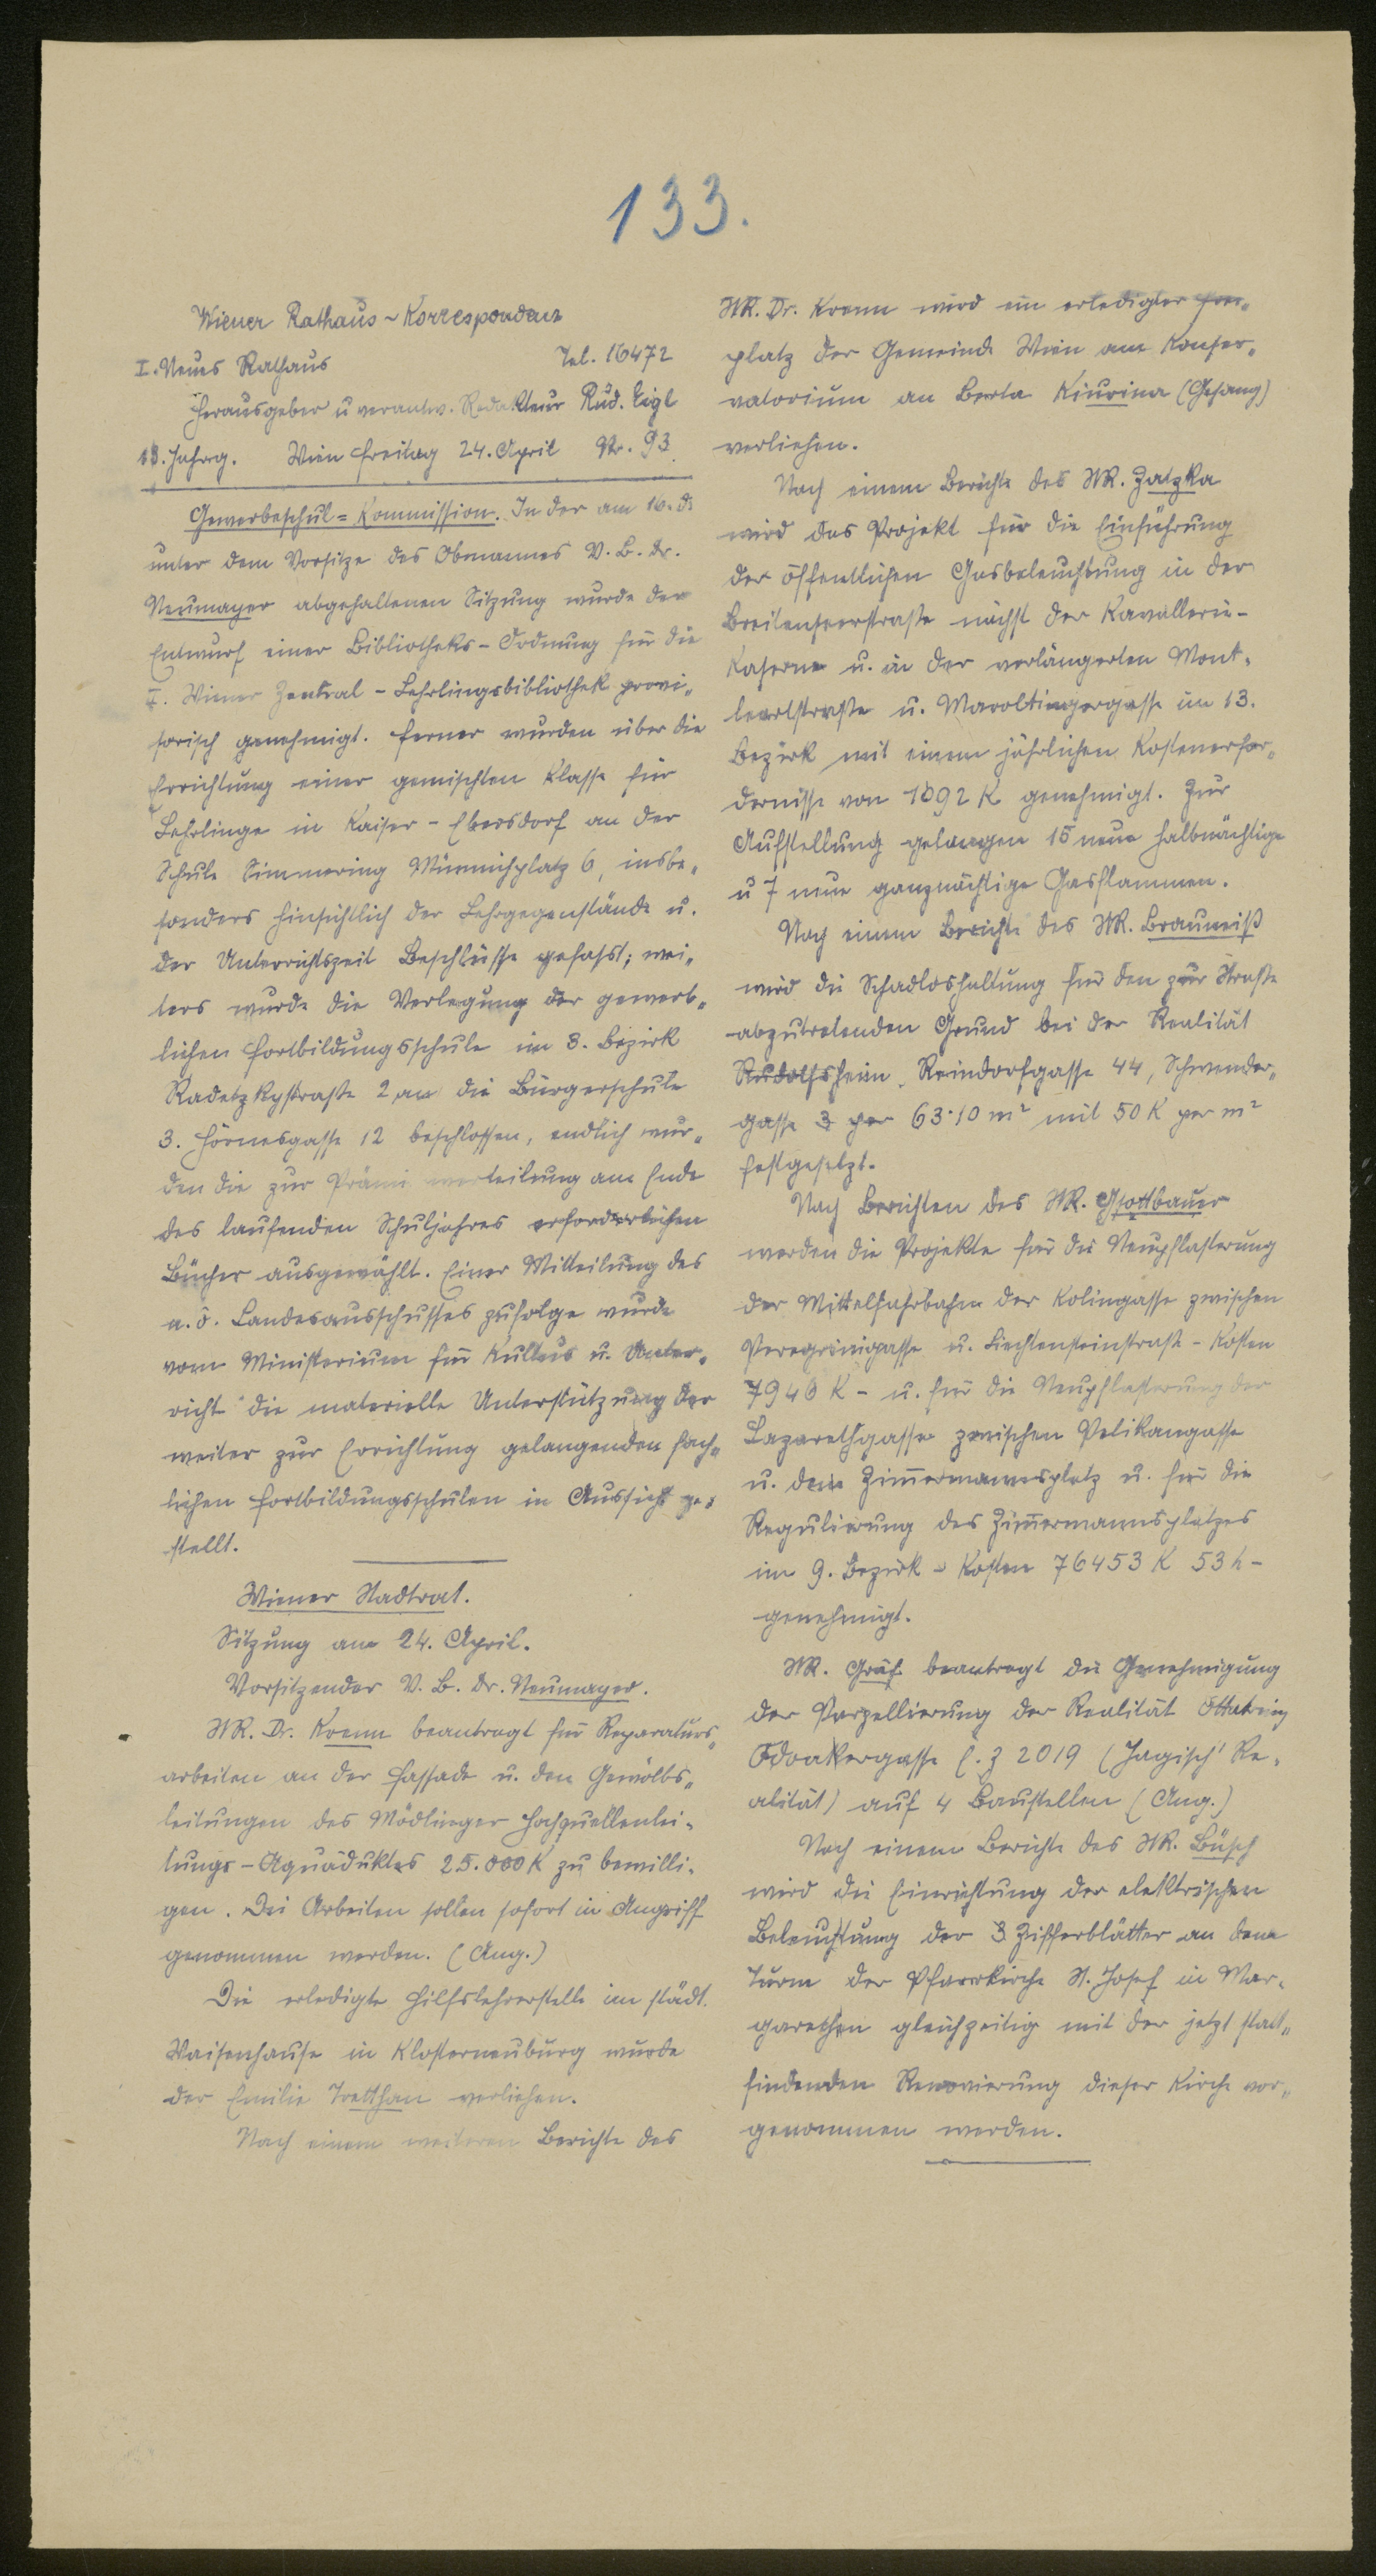 133.
Wiener Rathaus-Korrespondenz
I. Neues Rathaus Tel. 16472
Herausgeber u verantw. Redakteur Rud. Eigl
13. Jahrg. Wien Freitag 24. April Nr. 93
Gewerbeschul=Kommission. In der am 16. d.
unter dem Vorsitze des Obmannes V. B. Dr.
Neumayer abgehaltenen Sitzung wurde der
Entwurf einer Bibliotheks-Ordnung für die
I. Wiener Zentral-Lehrlingsbibliothek provi„
sorisch genehmigt. Ferner wurden über die
Errichtung einer gemischten Klasse für
Lehrlinge in Kaiser-Ebersdorf an der
Schule Simmering Münnichplatz 6, insbe„
sonders hinsichtlich der Lehrgegenstände u.
der Unterrichtszeit Beschlüsse gefasst; wei„
ters wurde die Verlegung der gewerb„
lichen Fortbildungsschule im 3. Bezirk
Radetzkystraße 2 an die Bürgerschule
3. Hörnesgasse 12 beschlossen, endlich wur„
den die zur Prämienverteilung am Ende
des laufenden Schuljahres erforderlichen
Bücher ausgewählt. Einer Mitteilung des
n. ö. Landesausschusses zufolge wurde
vom Ministerium für Kultus u. Unter„
richt die materielle Unterstützung der
weiter zur Errichtung gelangenden fach„
lichen Fortbildungsschulen in Aussicht ge„
stellt.
Wiener Stadtrat.
Sitzung am 24. April.
Vorsitzender V. B. Dr. Neumayer.
StR. Dr. Krenn beantragt für Reparaturs„
arbeiten an der Fassade u. den Gewölbs„
leitungen des Mödlinger Hochquellenlei„
tungs-Aquäduktes 25.000 K zu bewilli„
gen. Die Arbeiten sollen sofort in Angriff
genommen werden. (Ang.)
Die erledigte Hilfslehrerstelle im städt.
Waisenhause in Klosterneuburg wurde
der Emilie Tretthan verliehen.
Nach einem weiteren Berichte des
StR. Dr. Krenn wird ein erledigter Frei„
platz der Gemeinde Wien am Konser„
vatorium an Berta Kiurina (Gesang)
verliehen.
Nach einem Berichte des StR. Zatzka
wird das Projekt für die Einführung
der öffentlichen Gasbeleuchtung in der
Breitenseerstraße nächst der Kavallerie-
Kaserne u. in der verlängerten Mont„
leartstraße u. Maroltingergasse im 13.
Bezirk mit einem jährlichen Kostenerfor„
dernisse von 1092 K genehmigt. Zur
Aufstellung gelangen 15 neue halbnächtige
u 7 neue ganznächtige Gasflammen.
Nach einem Berichte des StR. Brauneiß
wird die Schadloshaltung für den zur Straße
abzutretenden Grund bei der Realität
Rudolfsheim, Reindorfgasse 44, Schwender„
gasse 3 per 63·10 m² mit 50 K per m²
festgesetzt.
Nach Berichten des StR. Gsottbauer
werden die Projekte für die Neupflasterung
der Mittelfahrbahn der Kolingasse zwischen
Peregrinigasse u. Liechtensteinstraße - Kosten
7946 K - u. für die Neupflasterung der
Lazarethgasse zwischen Pelikangasse
u. dem Zimmermannsplatz u. für die
Regulierung des Zimmermannsplatzes
im 9. Bezirk - Kosten 76453 K 53 h -
genehmigt.
StR. Gräf beantragt die Genehmigung
der Parzellierung der Realität Ottakring
Odoakergasse E. Z 2019 (Jagisch' Re„
alität) auf 4 Baustellen (Ang.)
Nach einem Berichte des StR. Büsch
wird die Einrichtung der elektrischen
Beleuchtung der 3 Zifferblätter an dem
Turm der Pfarrkirche St. Josef in Mar„
garethen gleichzeitig mit der jetzt statt„
findenden Renovierung dieser Kirche vor„
genommen werden.